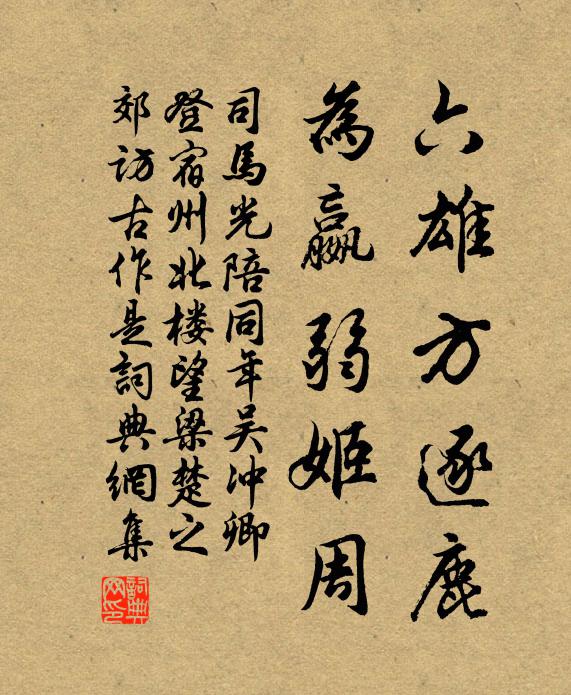 六雄方逐鹿
為嬴弱姬周
司馬光陪同年吴冲卿
登宿州北楼望梁楚之
郊访古作是詞典網集
詞典网印